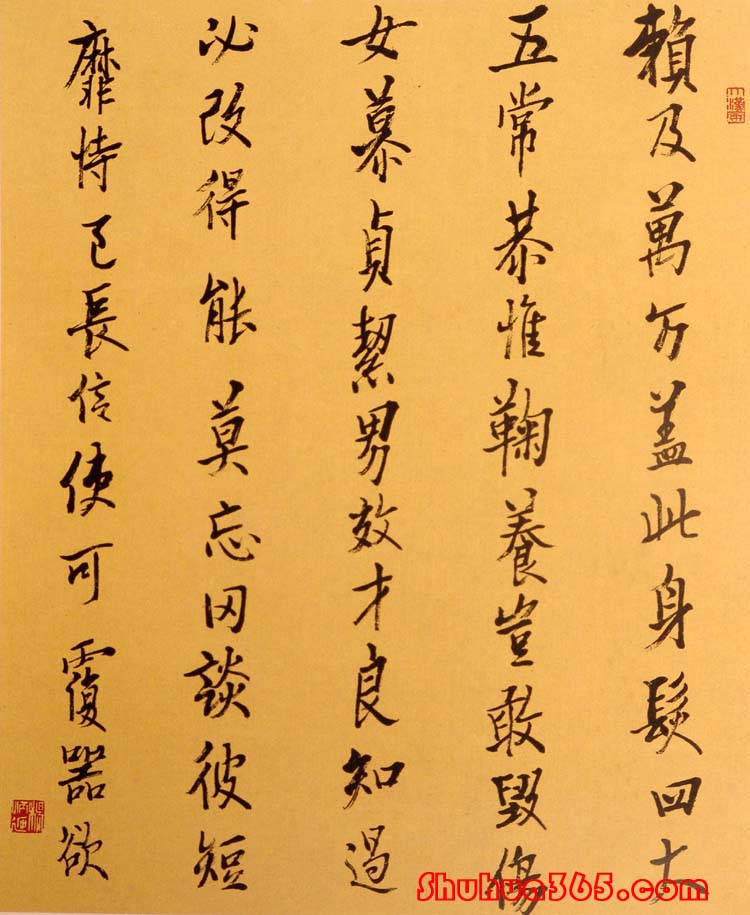 賴及萬方蓋此身髮四大
五常恭惟鞠養豈敢毀傷
女慕貞絜男效才良知過
必改得能莫忘罔談彼短
靡恃己長信使可覆器欲
Shuhua365.com